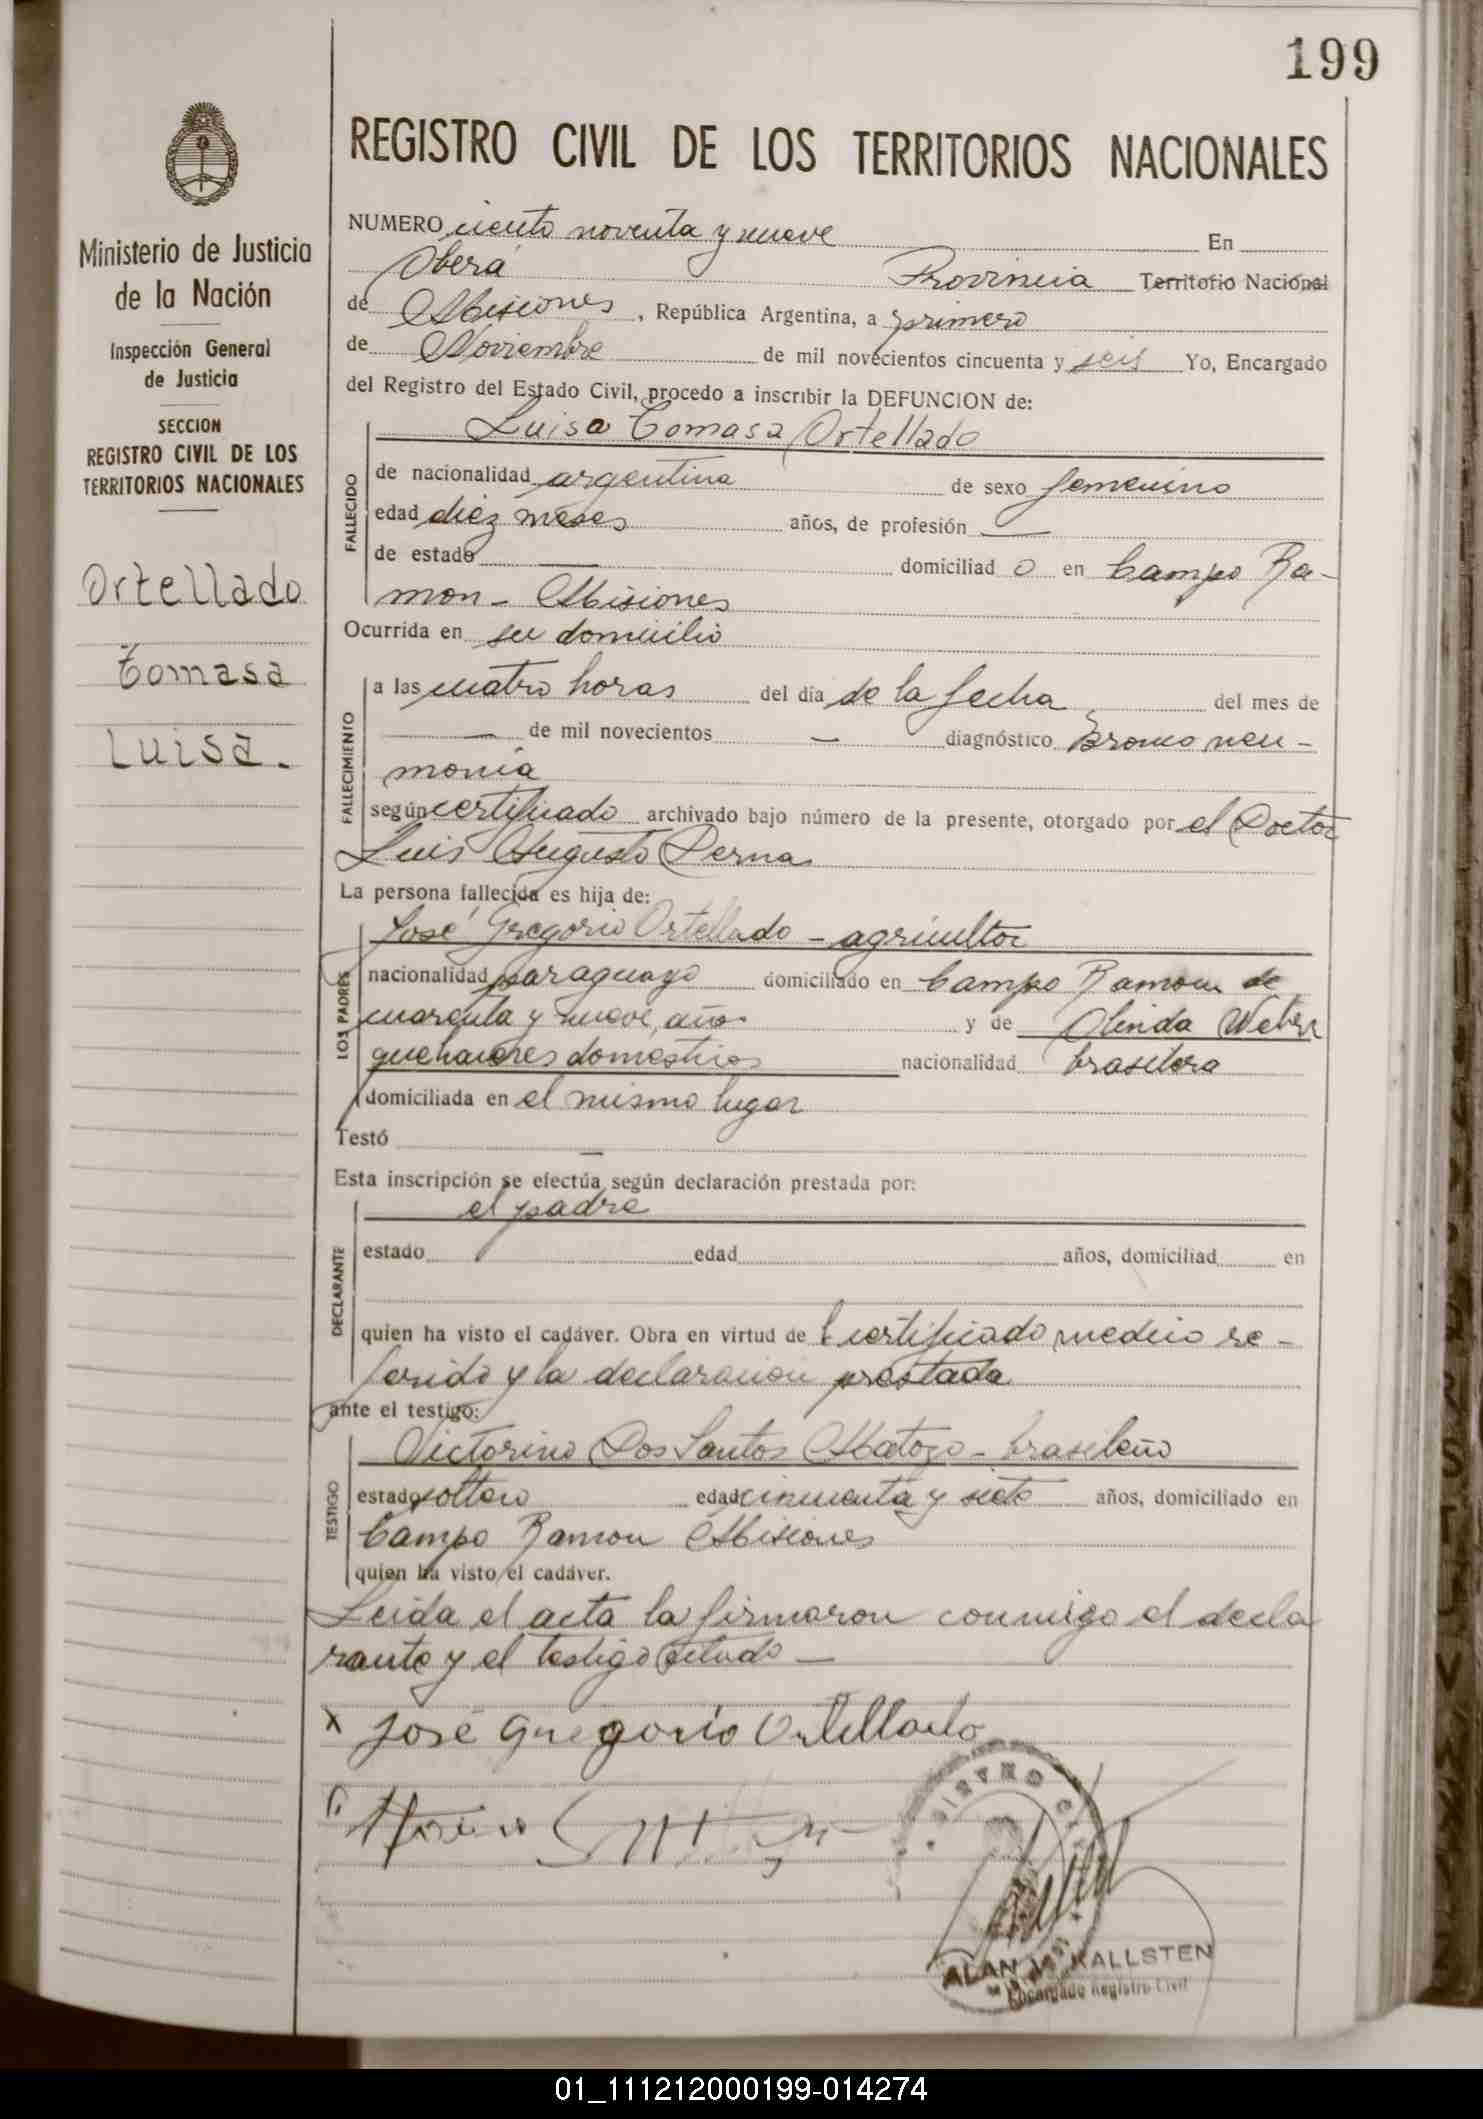 199
Ministerio de Justicia
de la Nación
Inspección General
de Justicia
SECCION
REGISTRO CIVIL DE LOS
TERRITORIOS NACIONALES
Ortellado
Tomasa
Luisa.
REGISTRO CIVIL DE LOS TERRITORIOS NACIONALES
NUMERO ciento noventa y nueve En
Oberá Provincia Territorio Nacional
de Misiones, República Argentina, a primero
de Noviembre de mil novecientos cincuenta y seis Yo, Encargado
del Registro del Estado Civil, procedo a inscribir la DEFUNCION de:
Luisa Tomasa Ortellado
FALLECIDO
de nacionalidad argentina de sexo femenino
edad diez meses años, de profesión —
de estado — domiciliad o en Campo Ra-
mon - Misiones
Ocurrida en su domicilio
FALLECIMIENTO
a las cuatro horas del día de la fecha del mes de
— de mil novecientos — diagnóstico Bronco neu-
monia
según certificado archivado bajo número de la presente, otorgado por el Doctor
Luis Augusto Perna
La persona fallecida es hija de:
LOS PADRES
José Gregorio Ortellado - agricultor
nacionalidad paraguayo domiciliado en Campo Ramon de
cuarenta y nueve años y de Olinda Weber
quehaceres domesticos nacionalidad brasilera
domiciliada en el mismo lugar
Testó —
Esta inscripción se efectúa según declaración prestada por:
el padre
DECLARANTE
estado edad años, domiciliad en
quien ha visto el cadáver. Obra en virtud de l certificado medico re-
ferido y la declaracion prestada
ante el testigo:
TESTIGO
Victorino Dos Santos Matozo - brasileño
estado soltero edad cincuenta y siete años, domiciliado en
Campo Ramon Misiones
quien ha visto el cadáver.
Leida el acta la firmaron conmigo el decla
rante y el testigo citado —
x José Gregorio Ortellado
ALAN V. KALLSTEN
Encargado Registro Civil
01_111212000199-014274